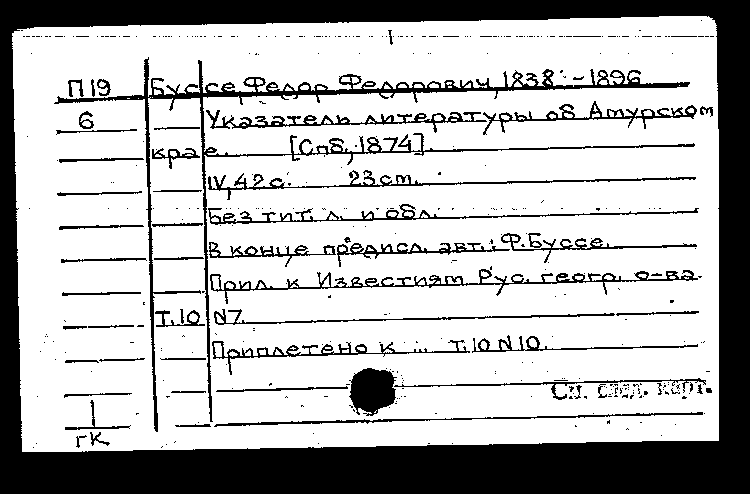 П19 Буссе, Федор Федорович, 1838 - 1896
6 Указатель литературы об Амурском
крае. [Спб., 1874].
IV, 42 с. 23 cm.
Без тит. л. и обл.
В конце предисл. авт.: Ф. Буссе.
Прил. к Известиям Рус. геогр. о-ва.
Т.10 N7.
Приплетено к ... т.10 N10.
См. след. карт.
ГК